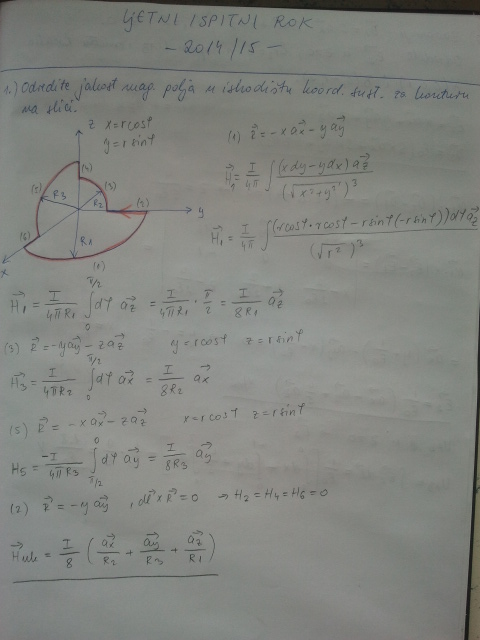 LJETNI ISPITNI ROK
- 2014/15 -
1.) Odredite jakost mag. polja u ishodištu koord. sust. za konturu
na slici.
z x = r cos t
y = r sin t
(1) R⃗ = -x a⃗x - y a⃗y
(4)
(5) R3 (3)
R2 (2)
y
H⃗1 = I/4π ∫ (x dy - y dx) a⃗z / (√x²+y²)³
(6)
R1
x
(1)
H⃗1 = I/4π ∫ (r cos t · r cos t - r sin t (-r sin t)) dt a⃗z / (√r²)³
H⃗1 = I/4πR1 ∫₀^π/2 dt a⃗z = I/4πR1 · π/2 = I/8R1 a⃗z
(3) R⃗ = -y a⃗y - z a⃗z y = r cos t z = r sin t
H⃗3 = I/4πR2 ∫₀^π/2 dt a⃗x = I/8R2 a⃗x
(5) R⃗ = -x a⃗x - z a⃗z x = r cos t z = r sin t
H5 = -I/4πR3 ∫_π/2^0 dt a⃗y = I/8R3 a⃗y
(2) R⃗ = -y a⃗y , dl⃗ × R⃗ = 0 → H2 = H4 = H6 = 0
H⃗uk = I/8 ( a⃗x/R2 + a⃗y/R3 + a⃗z/R1 )